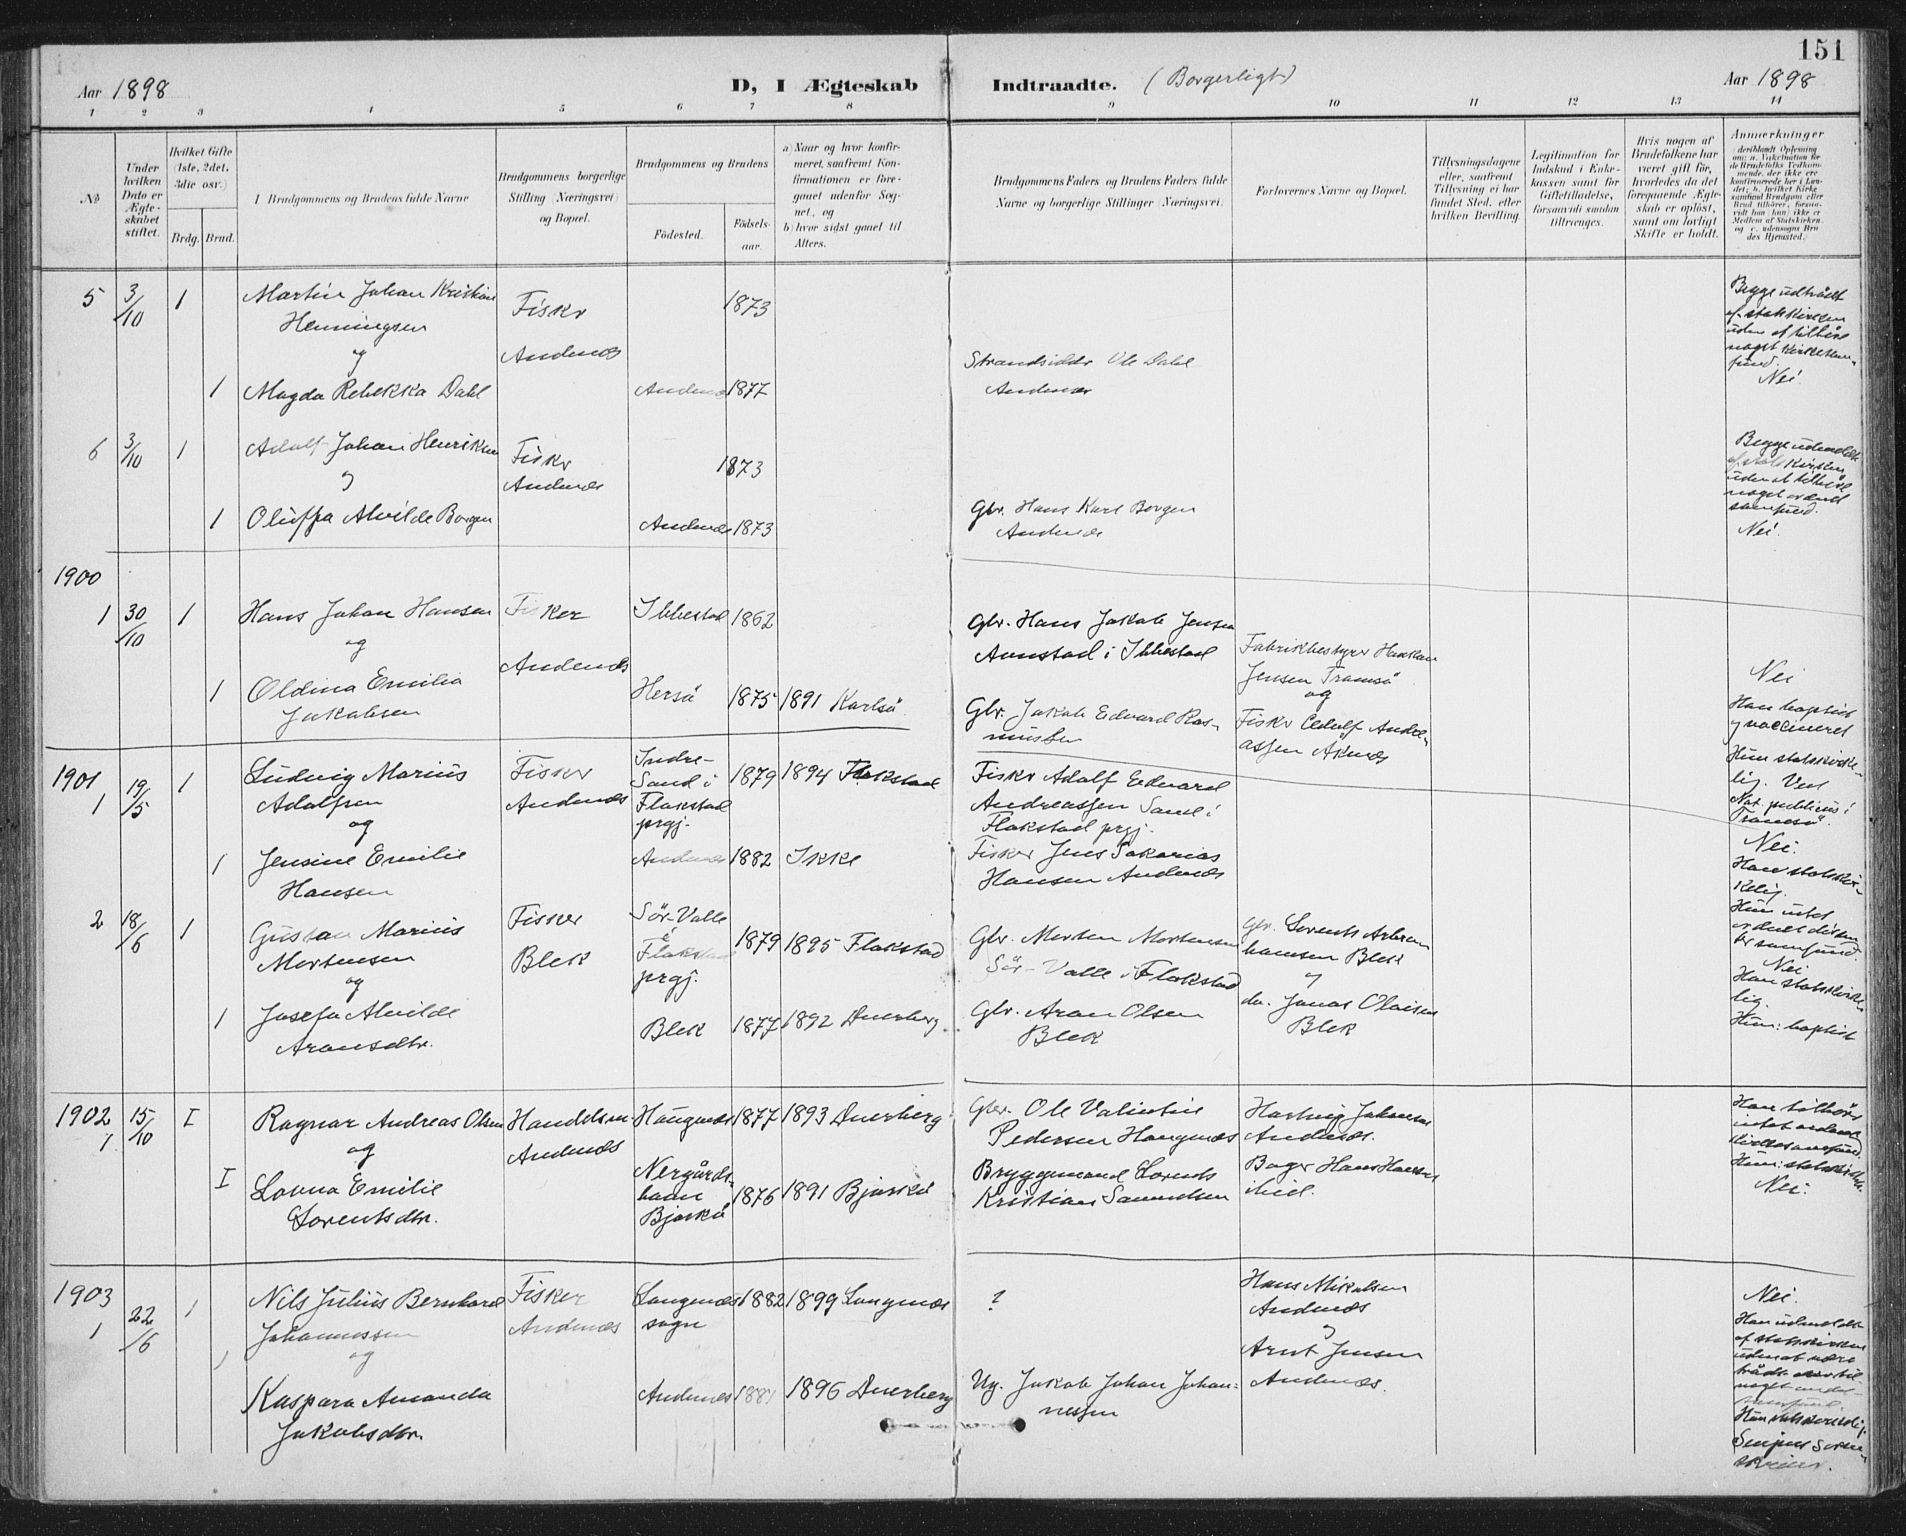 151
Aar 1898 D, I Ægteskab Indtraadte. (Borgerligt) Aar 1898
1 2 3 4 5 6 7 8 9 10 11 12 13 14
No
Under hvilken Dato er Ægteskabet stiftet.
Hvilket Gifte (1ste, 2det, 3die osv.)
Brdg. Brud.
1 Brudgommens og Brudens fulde Navne
Brudgommens borgerlige Stilling (Næringsvei) og Bopæl.
Brudgommens og Brudens
Fødested.
Fødselsaar.
a) Naar og hvor konfirmeret, saafremt Konfirmationen er foregaaet udenfor Sognet, og
b) hvor sidst gaaet til Alters.
Brudgommens Faders og Brudens Faders fulde Navne og borgerlige Stillinger (Næringsvei)
Forlovernes Navne og Bopæl.
Tillysningsdagene eller, saafremt Tillysning ei har fundet Sted, efter hvilken Bevilling.
Legitimation for Indskud i Enkekassen samt for Giftetilladelse, forsaavidt saadan tiltrænges.
Hvis nogen af Brudefolkene har været gift før, hvorledes da det foregaaende Ægteskab er opløst, samt om lovligt Skifte er holdt.
Anmærkninger
5 3/10 1 Martin Johan Kristian Fisker 1873
Henningsen
og Andenæs Strandsidder Ole Dahl
1 Magda Rebekka Dahl Andenæs 1877 Andenæs
Begge udtrådt
af statskirken
uden at tilhøre
noget kirkesam-
fund.
Nei.
6 3/10 1 Adolf Johan Henriksen Fisker 1873
og Andenæs
1 Oluffa Alvilde Borgen Andenæs 1873
Gbr. Hans Karl Borgen
Andenæs
Begge udmeldt
af statskirken
uden at tilhøre
noget andet
samfund.
Nei.
1900
1 30/10 1 Hans Johan Hansen Fisker Ibbestad 1862
og Andenæs
1 Oldina Emilia Hersø 1875 1891 Karlsø
Jakobsen
Gbr. Hans Jakob Jensen
Aunstad i Ibbestad
Gbr. Jakob Edvard Ras-
mussen
Fabrikbestyrer Haakon
Jensen Tromsø
og
Fisker Adolf Andre-
assen Åknes
Nei
Han baptist
og vaccineret
Hun statskirke-
lig. Ved
Not. publicus i
Tromsø.
1901
1 19/5 1 Ludvig Marius Fisker Indre- 1879 1894 Flakstad
Adolfsen Andenæs Sand i
og Flakstad
prgj.
1 Jensine Emilie Andenæs 1882 Ikke
Hansen
Fisker Adolf Edvard
Andreassen Sand i
Flakstad prgj.
Fisker Jens Sakarias
Hansen Andenæs
Nei.
Han statskir-
kelig.
Hun intet
andet dissen-
ter samfund.
2 18/6 1 Gustav Marius Fisker Sør-Valle 1879 1895 Flakstad
Mortensen Blek i Flakstad
og prgj.
1 Josefa Alvilde Blek 1877 1892 Dverberg
Aronsdtr.
Gbr. Morten Mortensen
Sør-Valle i Flakstad
Gbr. Aron Olsen
Blek
Gbr. Lorents Abra-
hamsen Blek
og
do. Jonas Olaisen
Blek
Nei
Han statskirke-
lig.
Hun: baptist
1902
1 15/10 I Ragnar Andreas Olsen Handelsm. Haugnæs 1877 1893 Dverberg
og Andenæs
I Lovna Emilie Nergårds- 1876 1891 Bjarkø
Lorentsdtr. havn
Bjarkø
Gbr. Ole Valintin
Pedersen Haugnæs
Bryggemand Lorents
Kristian Samuelsen
Hartvig Johansen
Andenæs.
Bager Hans Hansen
ibid.
Han tilhører
intet andet
kirkesamfund
Hun: statskirkelig.
Nei.
1903
1 22/6 1 Nils Julius Bernhard Fisker Langenæs 1882 1899 Langenæs
Johannessen Andenæs sogn
og
1 Kaspara Amanda Andenæs 1881 1896 Dverberg
Jakobsdtr.
?
Ug. Jakob Johan Johan-
nessen
Hans Mikalsen
Andenæs
og
Arnt Jensen
Andenæs.
Nei.
Han udmeldt
af statskirken
uden at være
noget andet
samfund
Hun statskirkelig.